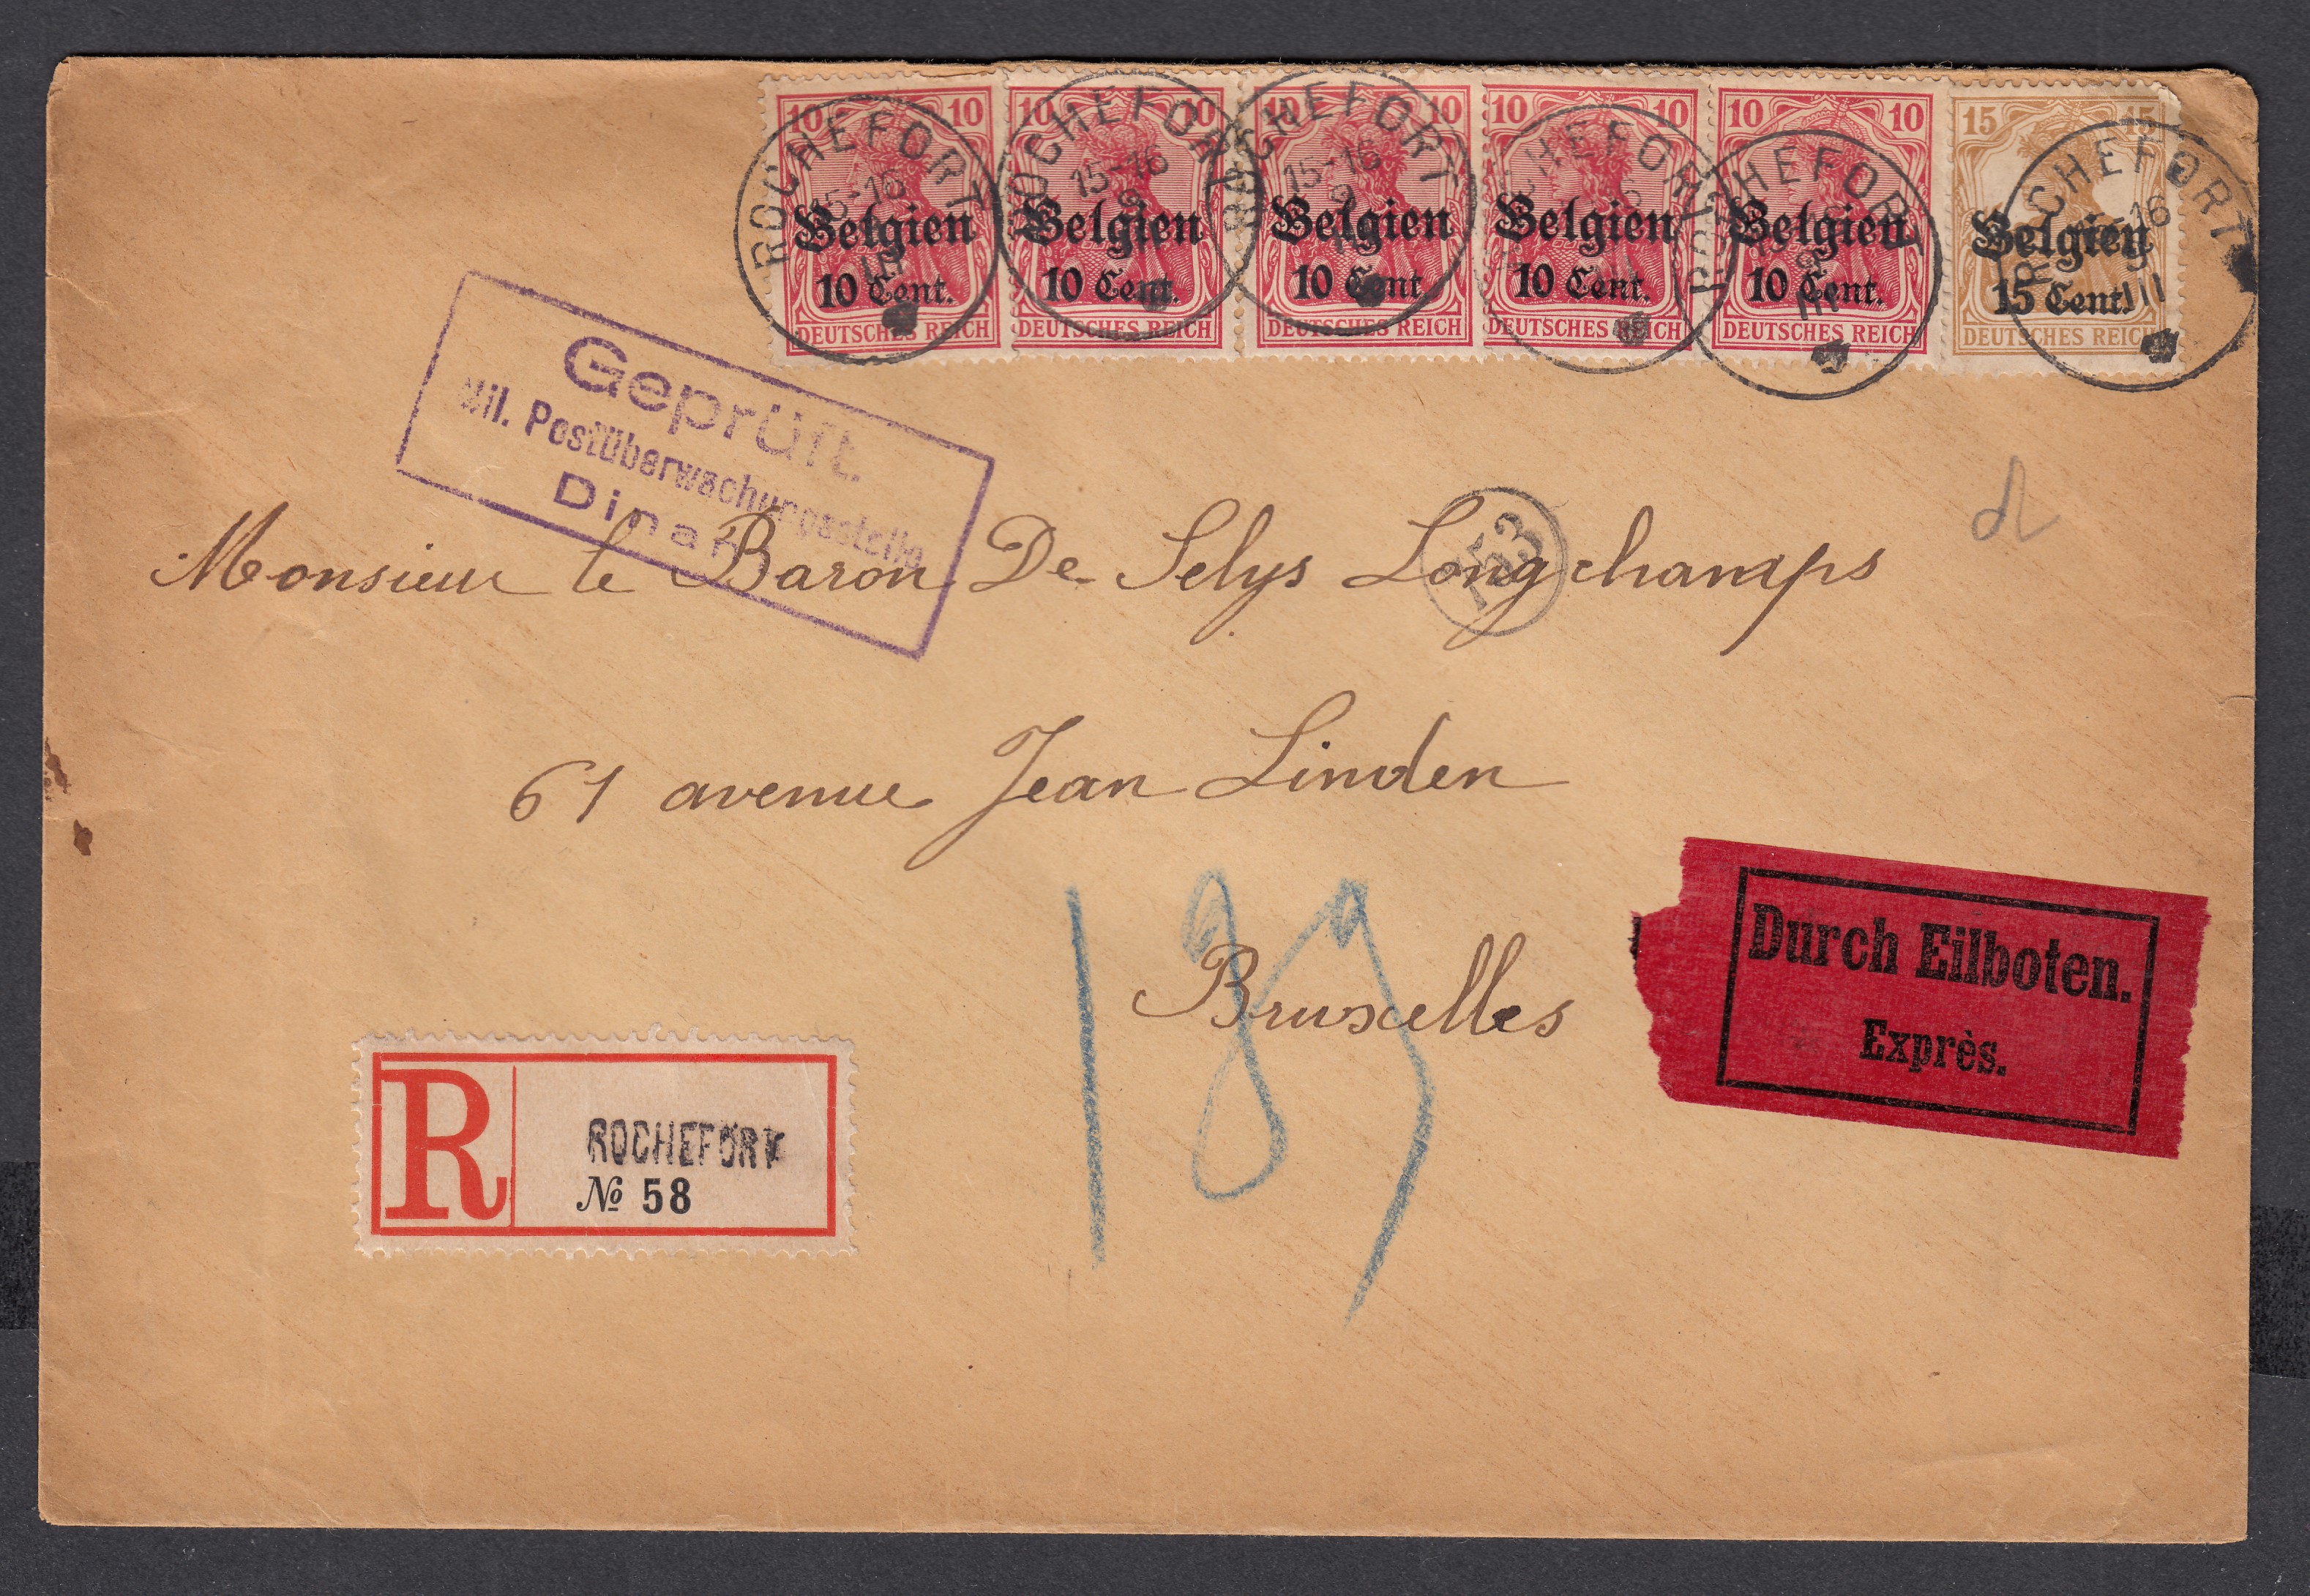 10 10 10 10 10 10 10 10 10 10 15 15
Belgien Belgien Belgien Belgien Belgien Belgien
10 Cent. 10 Cent. 10 Cent. 10 Cent. 10 Cent. 15 Cent.
DEUTSCHES REICH DEUTSCHES REICH DEUTSCHES REICH DEUTSCHES REICH DEUTSCHES REICH DEUTSCHES REICH
ROCHEFORT ROCHEFORT ROCHEFORT ROCHEFORT ROCHEFORT ROCHEFORT
15-16 15-16 15-16
9 9
III III
Geprüft.
Mil. Postüberwachungsstelle
Dinant
153
Monsieur le Baron De Selys Longchamps
61 avenue Jean Linden
Bruxelles
189
Durch Eilboten.
Exprès.
R
ROCHEFORT
№ 58